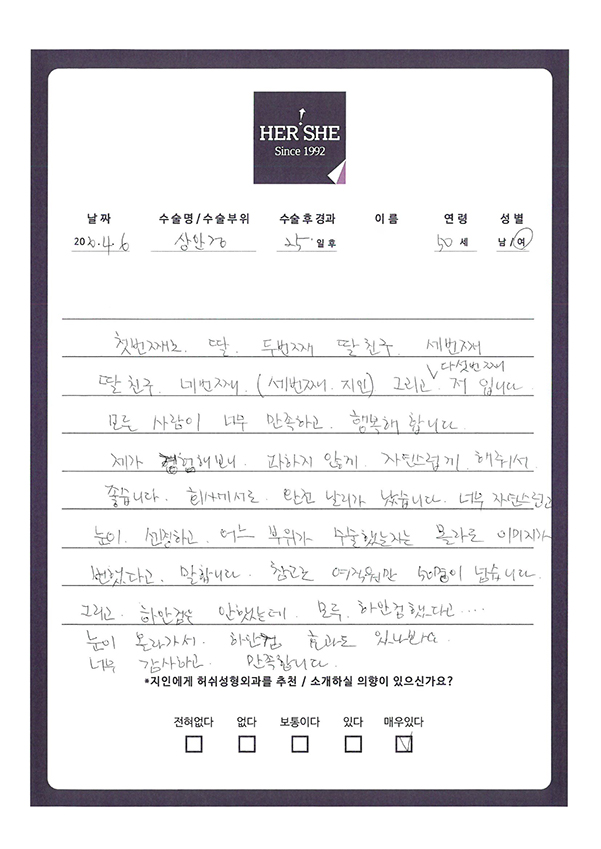 HER SHE
Since 1992
날 짜 수술명 / 수술부위 수술 후 경과 이 름 연 령 성 별
20 20.4.6 상안검 25 일 후 50 세 남 / 여
첫번째로. 딸. 두번째 딸친구. 세번째
다섯번째
딸친구. 네번째. (세번째. 지인) 그리고. 저 입니다.
모든 사람이 너무 만족하고. 행복해 합니다.
제가 경험해보니. 과하지 않게. 자연스럽게. 해줘서.
좋습니다. 회사에서도. 난리가 났습니다. 너무 자연스럽고
눈이. 선명하고. 어느 부위가 수술했는지는 몰라도 이미지가
변했다고. 말합니다. 참고로 여직원만 50명이 넘습니다.
그리고. 하안검은 안했는데. 모두. 하안검했다고....
눈이 올라가서. 하안검 효과도 있나봐요.
너무 감사하고. 만족합니다.
*지인에게 허쉬성형외과를 추천 / 소개하실 의향이 있으신가요?
전혀없다 없다 보통이다 있다 매우있다